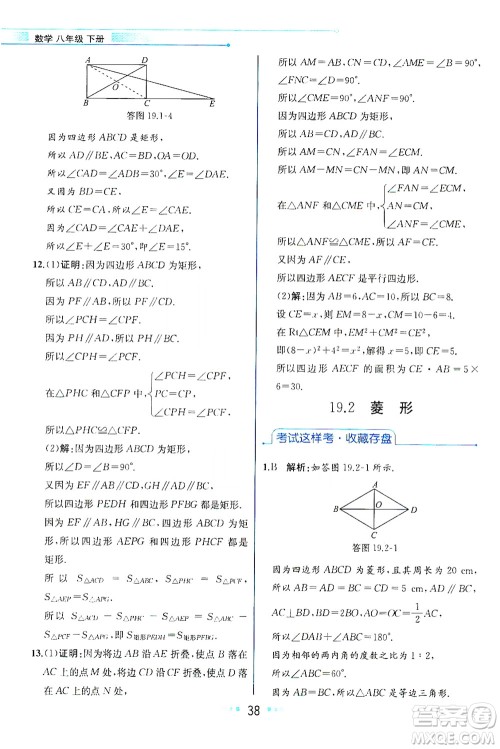 数学 八年级 下册
A
D
O
B
C
E
答图 19.1-4
因为四边形 ABCD 是矩形，
所以 AD∥BE，OA=OD.
所以∠CAD=∠ADB=30°，∠E=∠DAE.
又因为 BD=CE，
所以 CE=CA，所以∠E=∠CAE.
因为∠CAE+∠DAE=30°，
所以∠E+∠E=30°，即∠E=15°.
12.(1)证明：因为四边形 ABCD 为矩形，
所以 AB∥CD，AD∥BC.
因为 PF∥AB，所以 PF∥CD，
所以∠CPF=∠PCH.
因为 PH∥AD，所以 PH∥BC，
所以∠PCF=∠CPH.
在△PHC 和△CFP 中，
∠CPF=∠PCH，
PC=CP，
∠PCF=∠CPH，
所以△PHC≌△CFP.
(2)解：因为四边形 ABCD 为矩形，
所以∠D=∠B=90°.
因为 EF∥AB∥CD，GH∥AD∥BC，
所以四边形 PEDH 和 PFBG 都是矩形.
又因为 EF∥AB∥CD，GH∥AD∥BC，
所以四边形 AEPG 和四边形 PHCF 也是
矩形，
所以 S△ACD = S△ABC，S△PHC = S△PCF，
S△AEP=S△APG，
所以 S△ACD − S△AEP − S△PHC = S△ABC −
S△APG−S△PCF，即S矩形PEDH=S矩形PFBG.
13.(1)证明：将△ANB 沿 AN 折叠，使点 B 落
在 AC 上的点 M 处，将△CDE 沿 CE 折
叠，使点 D 落在 AC 上的点 F 处，
所以∠AMN=∠B=90°，
所以∠CME=90°，
所以∠ANF=∠CME=90°.
因为四边形 ABCD 为矩形，
所以 AB=CD，AD∥BC，
所以 AM−MN=CN−MN，即 AN=CM.
在△ANF 和△CME 中，
∠FAN=∠ECM，
AN=CM，
∠ANF=∠CME，
所以△ANF≌△CME，
所以 AF=CE.
又因为 AF∥CE，
所以四边形 AECF 是平行四边形.
(2)解：因为 AB=6，AC=10，所以 BC=8.
设 CE=x，则 EM=8−x，CM=10−6=4.
在 Rt△CEM 中，(8−x)²+4²=x²，
即(8−x)²+4²=x²，解得 x=5.
所以四边形 AECF 的面积为 CE·AB=5×
6=30.
19.2 菱 形
考试这样考·收藏存盘
1.B 解析：如答图 19.2-1 所示.
A
B
O
D
C
答图 19.2-1
因为四边形 ABCD 是菱形，其周长为 20 cm，
所以 AB = BC = CD = 5 cm，OA = 1/2 AC，
AC⊥BD，AB∥CD，
所以∠ABC+∠BCD=180°.
因为相邻的两内角的度数之比为 1∶2，
所以∠ABC=60°.
所以△ABC 是等边三角形，
38